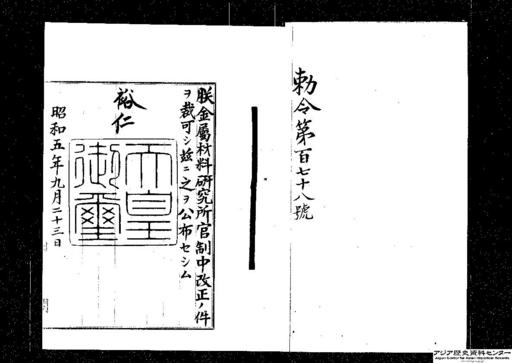 勅令第百七十八號
朕金屬材料研究所官制中改正ノ件
ヲ裁可シ茲ニ之ヲ公布セシム
裕仁
天皇御璽
昭和五年九月二十三日
アジア歴史資料センター
Japan Center for Asian Historical Records